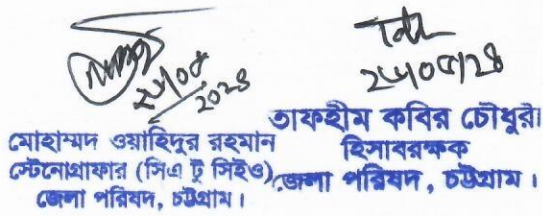 মোহাম্মদ ওয়াহিদুর রহমান
স্টেনোগ্রাফার (সিএ টু সিইও)
জেলা পরিষদ, চট্টগ্রাম।
তাফহীম কবির চৌধুরী
হিসাবরক্ষক
জেলা পরিষদ, চট্টগ্রাম।